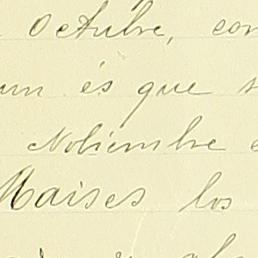 Octubre, con
um és que
Nobiembre
Maises los